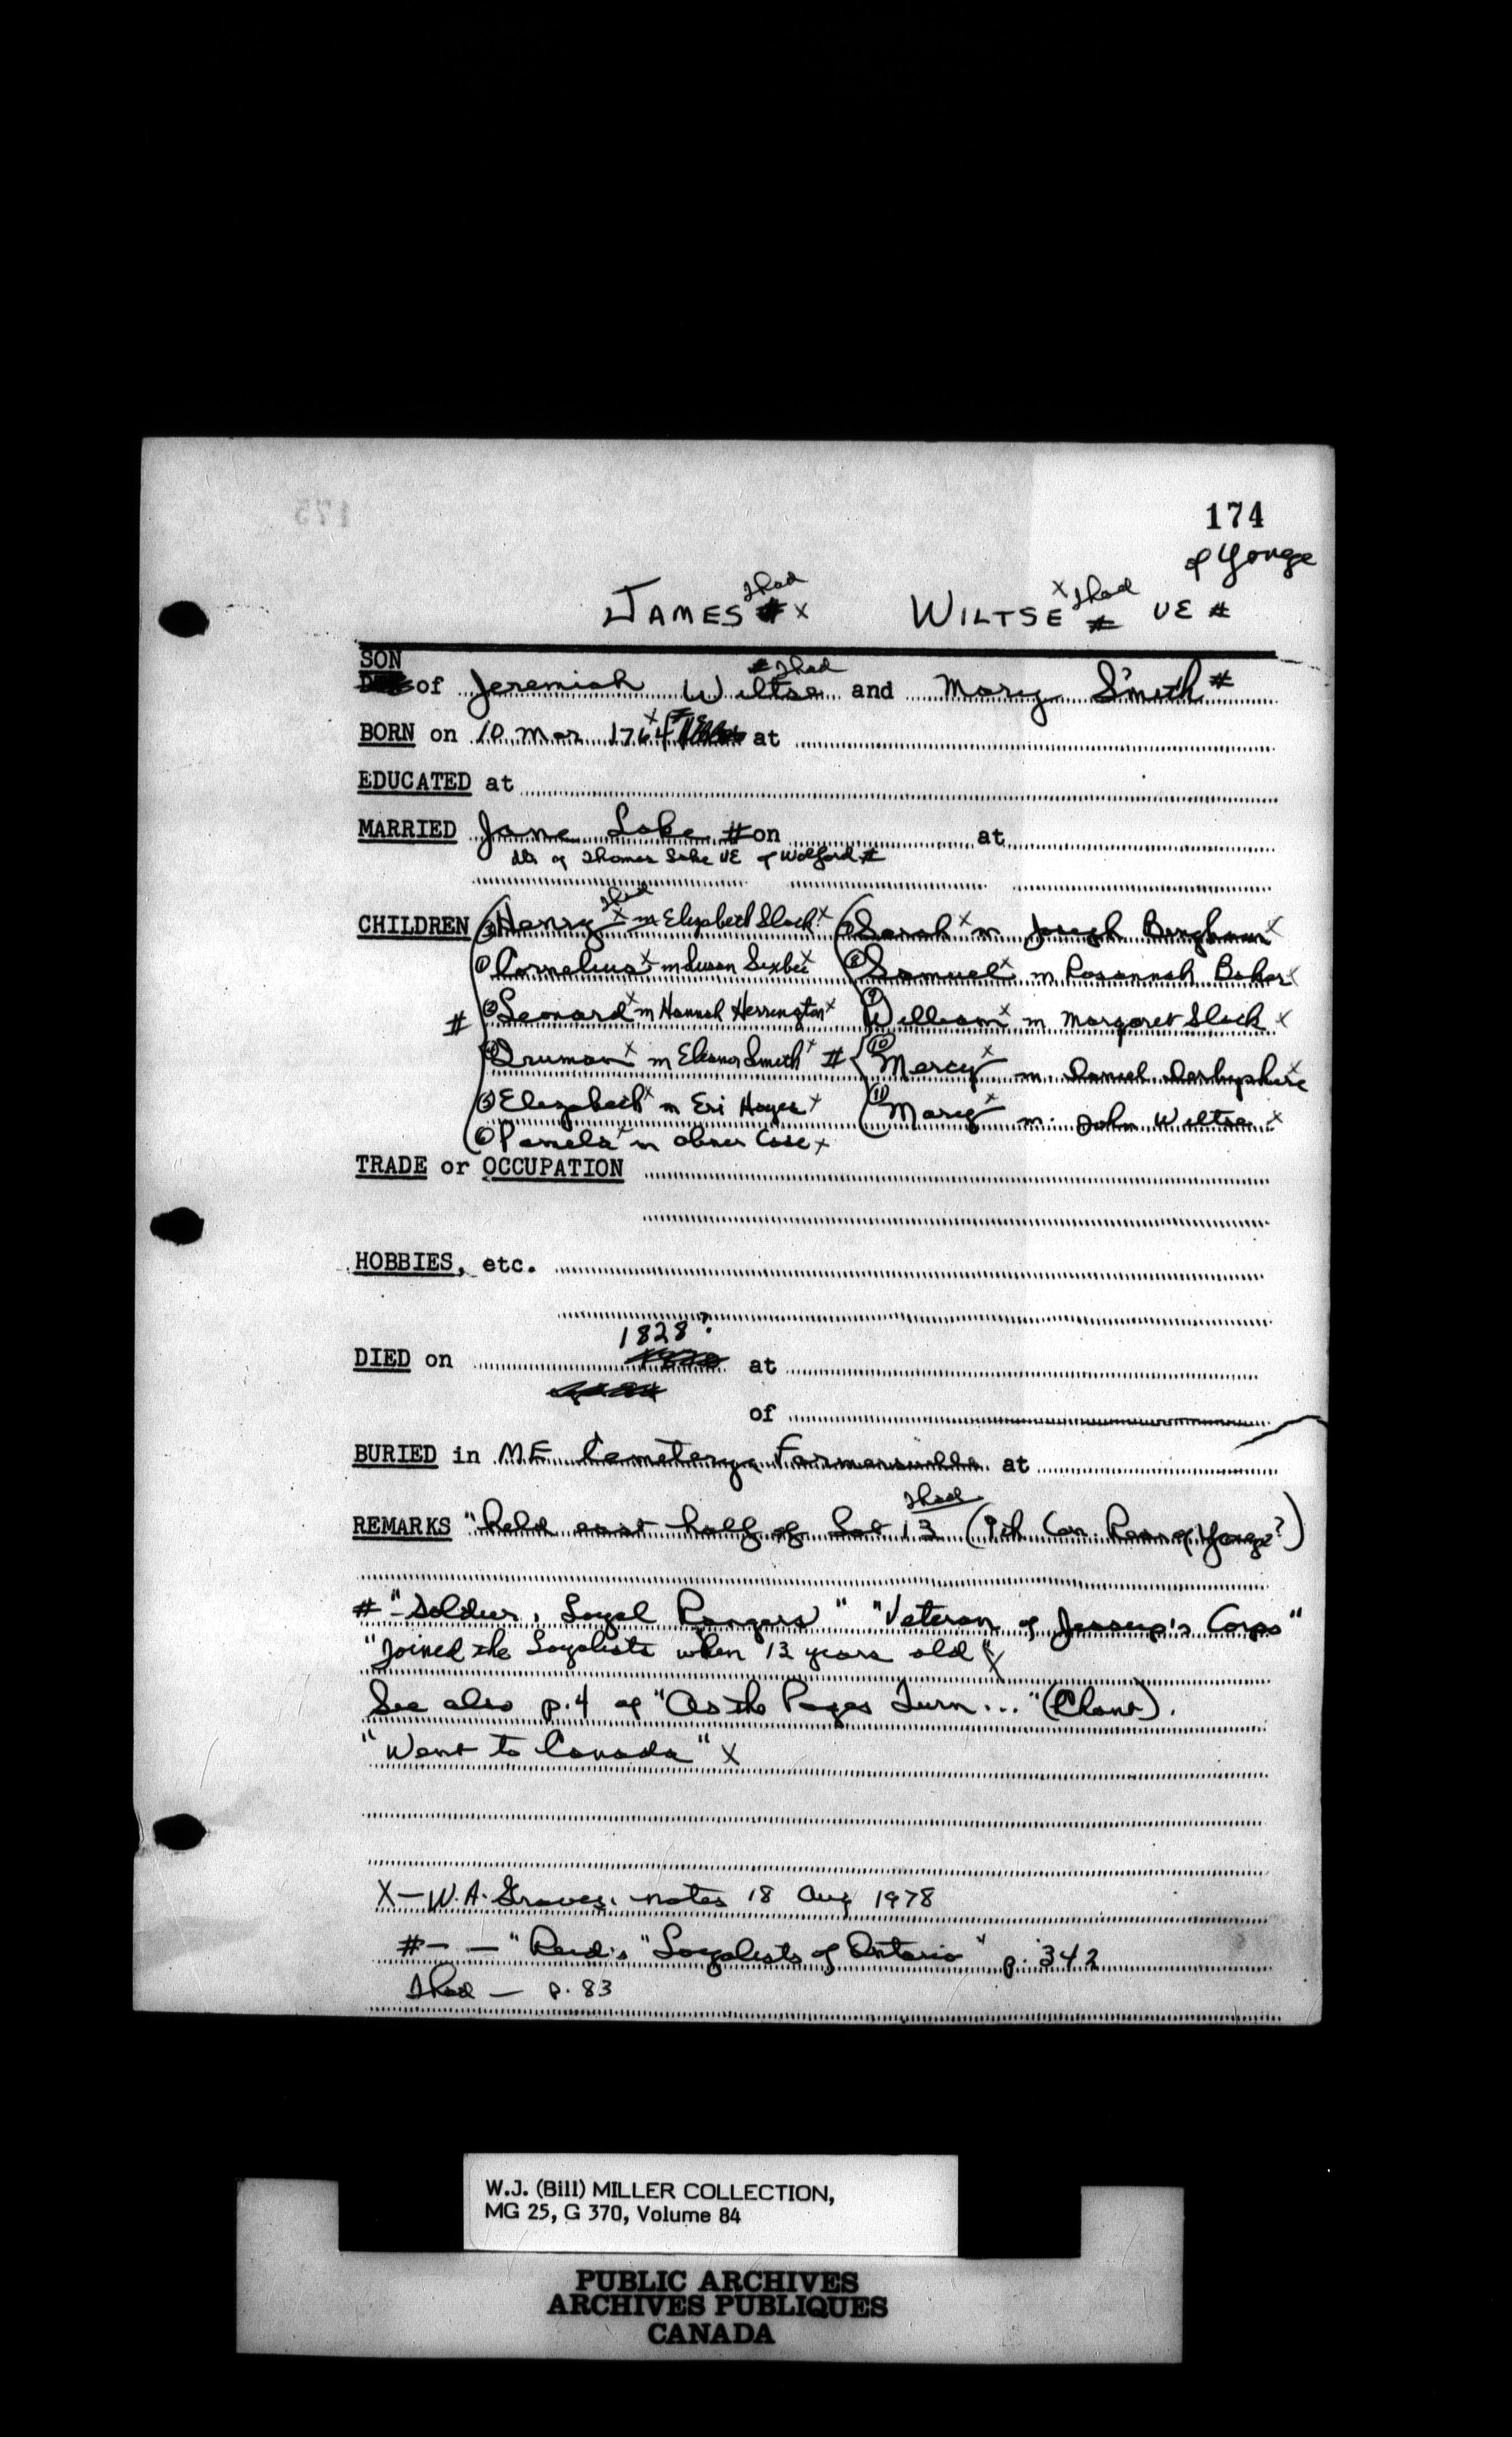 174
of Yonge
JAMES # x WILTSE x # UE #
Thad Thad
SON
of Jeremiah Wiltse # Thad and Mary Smith #
BORN on 10 Mar 1764 x # at
EDUCATED at
MARRIED Jane Lake # on at
dr of Thomas Lake UE of Wolford #
CHILDREN (3) Henry Thad x m Elizabeth Slack x (7) Sarah x m Joseph Bingham x
(1) Cornelius x m Susan Sexbee x (8) Samuel x m Rosannah Baker x
# (2) Leonard x m Hannah Herrington x (9) William x m Margaret Slack x
(4) Truman x m Eleanor Smith x # (10) Mercy x m Daniel Darbyshire x
(5) Elizabeth x m Eri Hayes x (11) Mary x m. John Wiltse x
(6) Pamela x m Abner Case x
TRADE or OCCUPATION
HOBBIES, etc.
1828?
DIED on at
of
BURIED in M.E. Cemetery, Farmersville at
Thad
REMARKS "held east half of Lot 13 (9th Con. Rear of Yonge?)
# "-Soldier, Loyal Rangers" "Veteran of Jessup's Corps"
"Joined the Loyalists when 13 years old" x
See also p. 4 of "As the Pages Turn..." (Chant).
"Went to Canada" x
X - W.A. Graves, notes 18 Aug 1978
# - - "Reid's "Loyalists of Ontario" p. 342
Thad - p. 83
W.J. (Bill) MILLER COLLECTION,
MG 25, G 370, Volume 84
PUBLIC ARCHIVES
ARCHIVES PUBLIQUES
CANADA